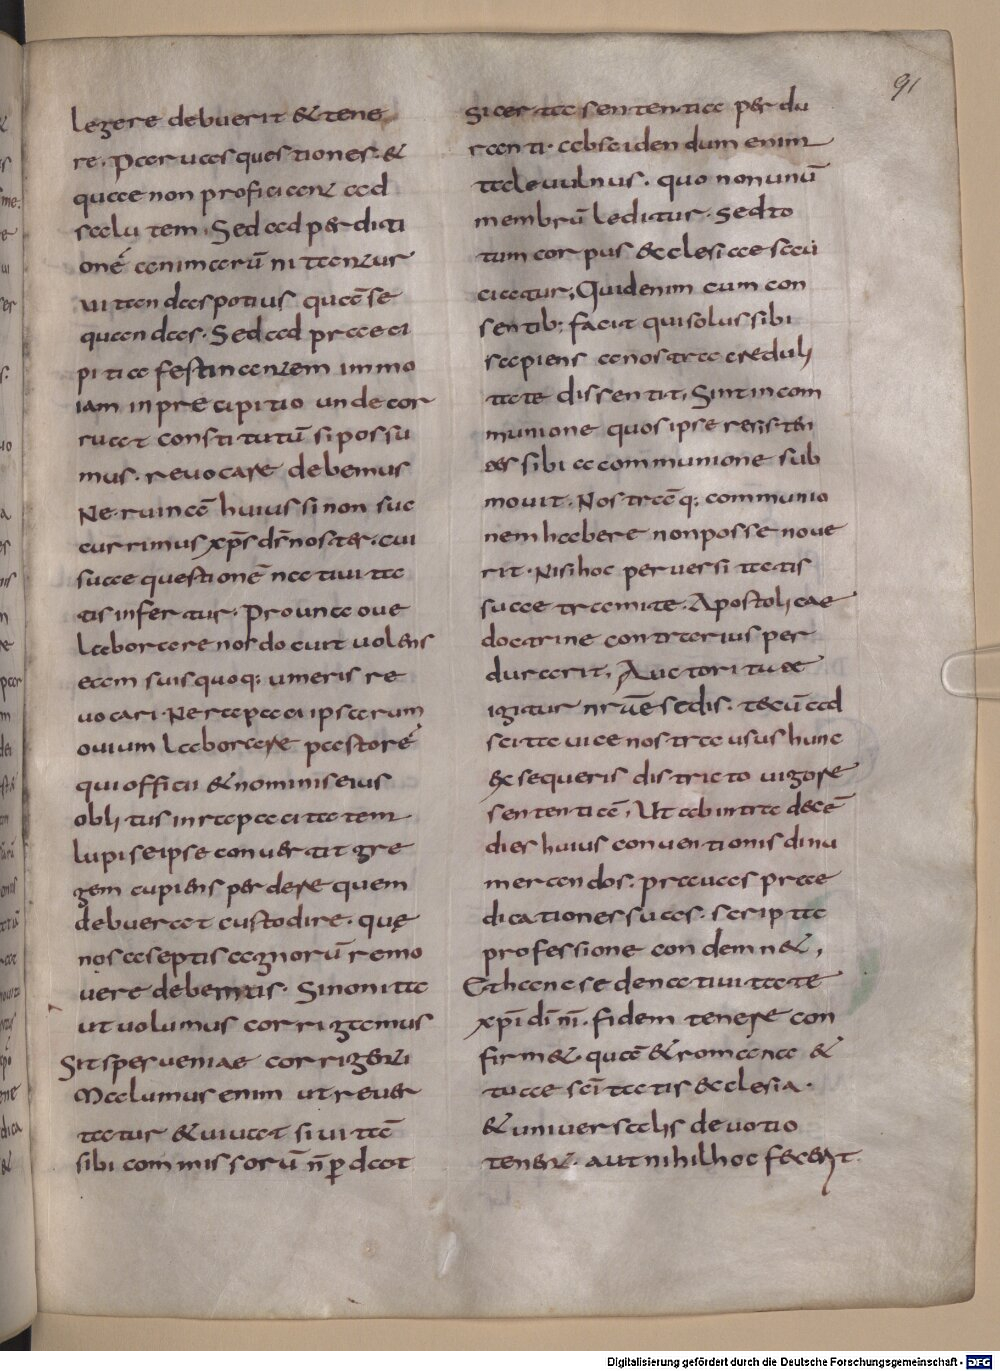 91
legere debuerit & tene
re. Prauas questiones. &
quae non proficiant ad
salutem. Sed ad perditi
oné animarū nitantur
uitandas potius quā se
quendas. Sed ad praeci
pitia festinantem immo
iam in precipitio unde cor
ruat constitutū si possu
mus. reuocare debemus
Ne ruinā huius si non suc
currimus xp̄s dn̄s noster. cui
suae questionē natiuita
tis infertur. Pro una oue
laborare nos docuit uolens
eam suis quoq; umeris re
uocari. Ne rapaci ipsarum
ouium laborare pastoré
qui officii & nominis eius
oblitus in rapacitatem
lupi se ipse conuertit gre
gem cupiens perdere quem
debuerat custodire. quę
nos a septis agnorū remo
uere debemus. Si non ita
ut uolumus corrigamus
Sit sperueniae corrigenti
Malumus enim ut reuer
tatur & uiuat si uitā
sibi commissorū n̄ p̲dat
si certa sententia perdu
ranti. abscidendum enim
tale uulnus. quo non unū
membrū leditur. Sed to
tum corpus ecclesiae saeu
ciatur; Quid enim cum con
sentib; facit qui solus sibi
sapiens a nostra creduli
tate dissentit; Sint in com
munione quos ipse resisten
tes sibi a communione sub
mouit. Nostrāq; communio
nem habere non posse noue
rit. Nisi hoc peruersitatis
suae tramite. Apostolicae
doctrine contrarius per
durarit; Auctoritate
igitur nr̄ē sedis. tecū ad
scita uice nostra usus hunc
exsequeris districto uigore
sententiā; Ut ab intra decē
dies huius conuentionis dinu
merandos. prauas prae
dicationes suas. scripta
professione condemn&;
Et hanc se de natiuitate
xp̄i dī nī. fidem tenere con
firm&. quā & romana &
tuae sc̄itatis ecclesia.
& uniuersalis deuotio
ten&. aut nihil hoc fecerit
Digitalisierung gefördert durch die Deutsche Forschungsgemeinschaft - DFG